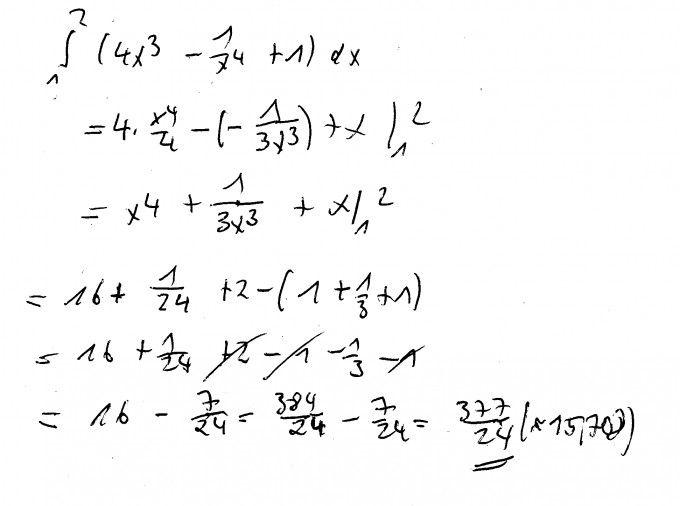 ∫₁² (4x³ - 1/x⁴ + 1) dx
= 4 · x⁴/4 - (- 1/3x³) + x |₁²
= x⁴ + 1/3x³ + x |₁²
= 16 + 1/24 + 2 - (1 + 1/3 + 1)
= 16 + 1/24 + 2 - 1 - 1/3 - 1
= 16 - 7/24 = 384/24 - 7/24 = 377/24 (≈ 15,708)